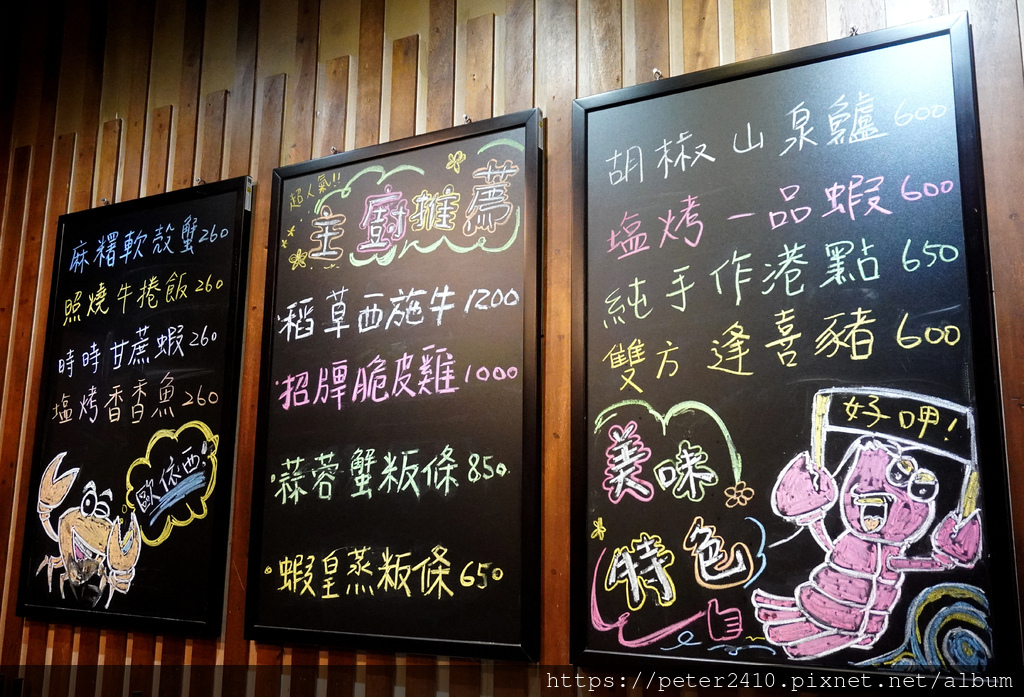 麻糬軟殼蟹260
照燒牛捲飯260
時時甘蔗蝦260
塩烤香香魚260
歐依西
超人氣!!
主廚推薦
·稻草西施牛1200
·招牌脆皮雞1000
·蒜蓉蟹粄條850
·蝦皇蒸粄條650
胡椒山泉鱸600
塩烤一品蝦600
純手作港點650
雙方逢喜豬600
好呷!
美味
特色
https://peter2410.pixnet.net/album